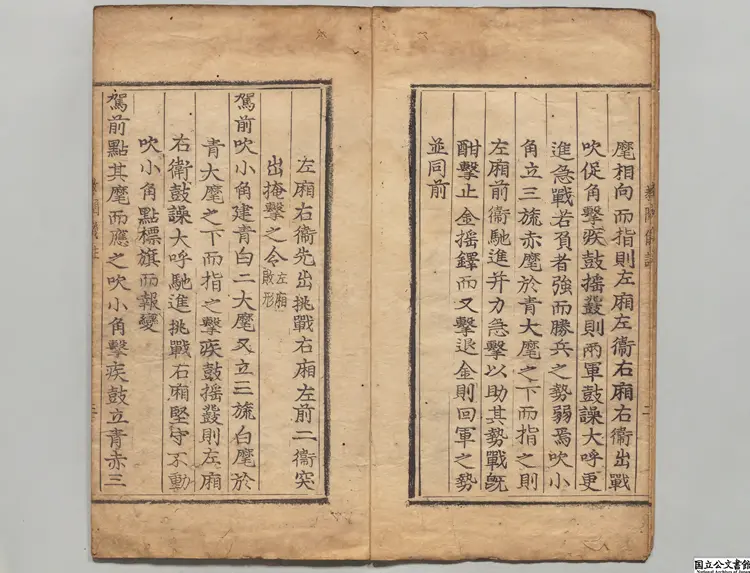 麾相向而指則左廂左衛右廂右衛出戰
吹促角擊疾鼓揺鼗則兩軍鼓譟大呼更
進急戰若負者強而勝兵之勢弱焉吹小
角立三旒赤麾於青大麾之下而指之則
左廂前衛馳進并力急擊以助其勢戰既
酣擊止金揺鐸而又擊退金則回軍之勢
並同前
左廂右衛先出挑戰右廂左前二衛突
出掩擊之令左廂敗形
駕前吹小角建青白二大麾又立三旒白麾於
青大麾之下而指之擊疾鼓揺鼗則左廂
右衛鼓譟大呼馳進挑戰右廂堅守不動
吹小角點標旗而報變
駕前點其麾而應之吹小角擊疾鼓立青赤三
国立公文書館
National Archives of Japan